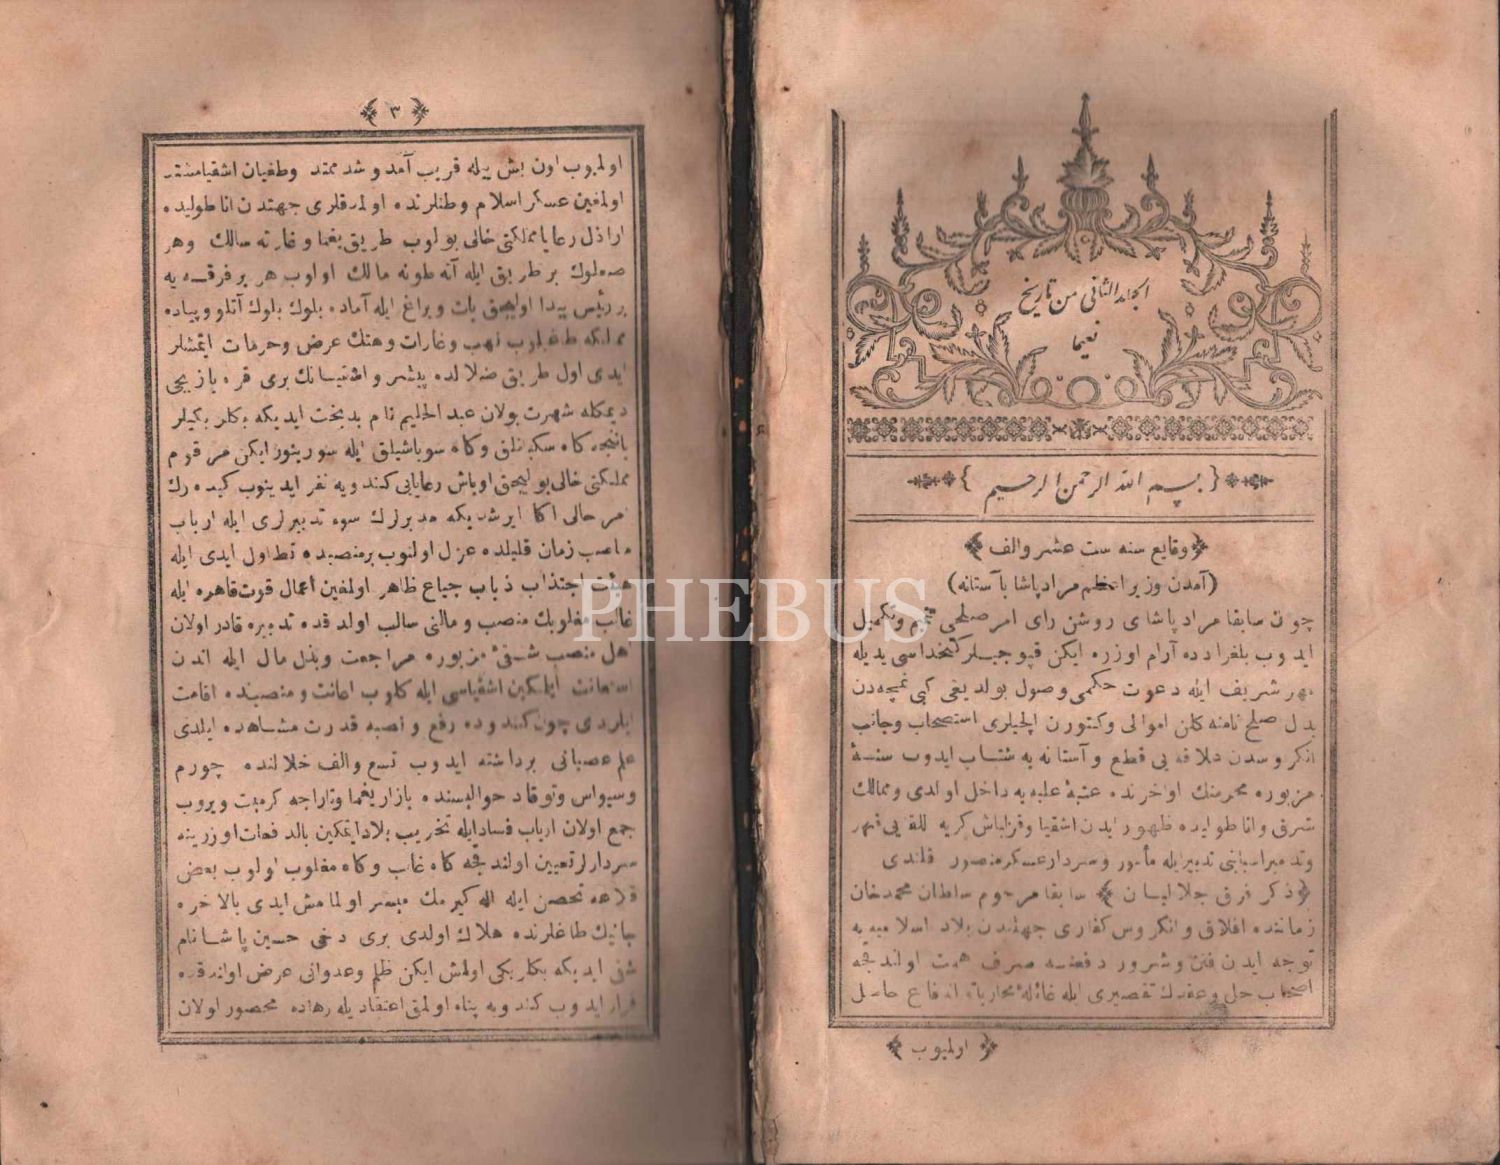 الجلد الثانی من تاریخ
نعیما
بسم الله الرحمن الرحیم
وقایع سنه ست عشر والف
(آمدن وزیر اعظم مراد پاشا با آستانه)
چون سابقا مراد پاشای روشن رای امر صلحی تتمیم وتکمیل
ایدوب بلغرادده آرام اوزره ایکن قپوجیلر کتخداسی یدیله
مهر شریف ایله دعوت حکمی وصول بولدیغی کبی نمچه‌دن
بدل صلح نامنه کلن اموالی وکتورن ایلچیلری استصحاب وجانب
انکروسدن علاقه‌یی قطع وآستانه‌یه شتاب ایدوب سنۀ
مزبوره محرمنک اواخرنده عتبۀ علیه‌یه داخل اولدی وممالک
شرق واناطولیده ظهور ایدن اشقیا وقزلباش
تدبیرایله مأمور وسردار عسکر منصور قلندی
ذکر فرق جلالیان سابقا مرحوم سلطان محمد خان
زماننده افلاق وانکروس کفاری جهتندن بلاد اسلامیه‌یه
توجه ایدن فتن وشرور دفعنه صرف همت اولندقجه
اصحاب حل وعقدک تقصیری ایله غائلۀ محاربات اندفاع حاصل
اولمیوب
٣
اولمیوب اون بش ییله قریب آمد وشد ممتد وطغیان اشقیا
اولمغین عسکر اسلام وطنلرنده اولمدقلری جهتدن اناطولیده
اراذل رعایا مملکتی خالی بولوب طریق یغما وغارته سالک وهر
صعلوک بر طریق ایله آته طونه مالک اولوب هر بر فرقه‌یه
بر رئیس پیدا اولیجق یات ویراغ ایله آماده بلوک بلوک آتلو وپیاده
مملکته طاغیلوب نهب وغارات وهتک عرض وحرمات ایتمشلر
ایدی اول طریق ضلالده پیشرو اشقیانک بری قره یازیجی
دیمکله شهرت بولان عبد الحلیم نام بدبخت ایدیکه بکلر بکیلر
یاننجه کاه سکبانلق وکاه سوباشیلق ایله سورینور ایکن مرقوم
مملکتی خالی بولیجق اوباش رعایایی کندویه نفر ایدینوب کیده‌رک
امر حالی اکا ایرشدیکه مدبرلرک سوء تدبیرلری ایله ارباب
مناصب زمان قلیلده عزل اولنوب بر منصبده تطاول ایدی ایله
اجتذاب ذباب جیاع ظاهر اولمغین اعمال قوت قاهره ایله
غالب مغلوبک منصب ومالنی سالب اولدقده تدبیره قادر اولان
اهل منصب شقئ مزبوره مراجعت وبذل مال ایله اندن
استعانت ایلمکین اشقیاسی ایله کلوب اعانت ومنصبنده اقامت
ایلردی چون کندوده رفع ونصبه قدرت مشاهده ایلدی
علم عصیانی برداشته ایدوب تسع والف خلالنده چورم
وسیواس وتوقاد حوالیسنده بازار یغما وتاراجه کرمیت ویروب
جمع اولان ارباب فساد ایله تخریب بلاد ایتمکین بالدفعات اوزرینه
سردارلر تعیین اولندقجه کاه غالب وکاه مغلوب اولوب بعض
قلاعه تحصن ایله اله کیرمک میسر اولمامش ایدی بالاخره
جانیک طاغلرنده هلاک اولدی بری دخی حسین پاشا نام
شقی ایدیکه بکلربکی اولمش ایکن ظلم وعدوانی عرض اولندقده
فرار ایدوب کندویه پناه اولمق اعتقادیله رهاده محصور اولان